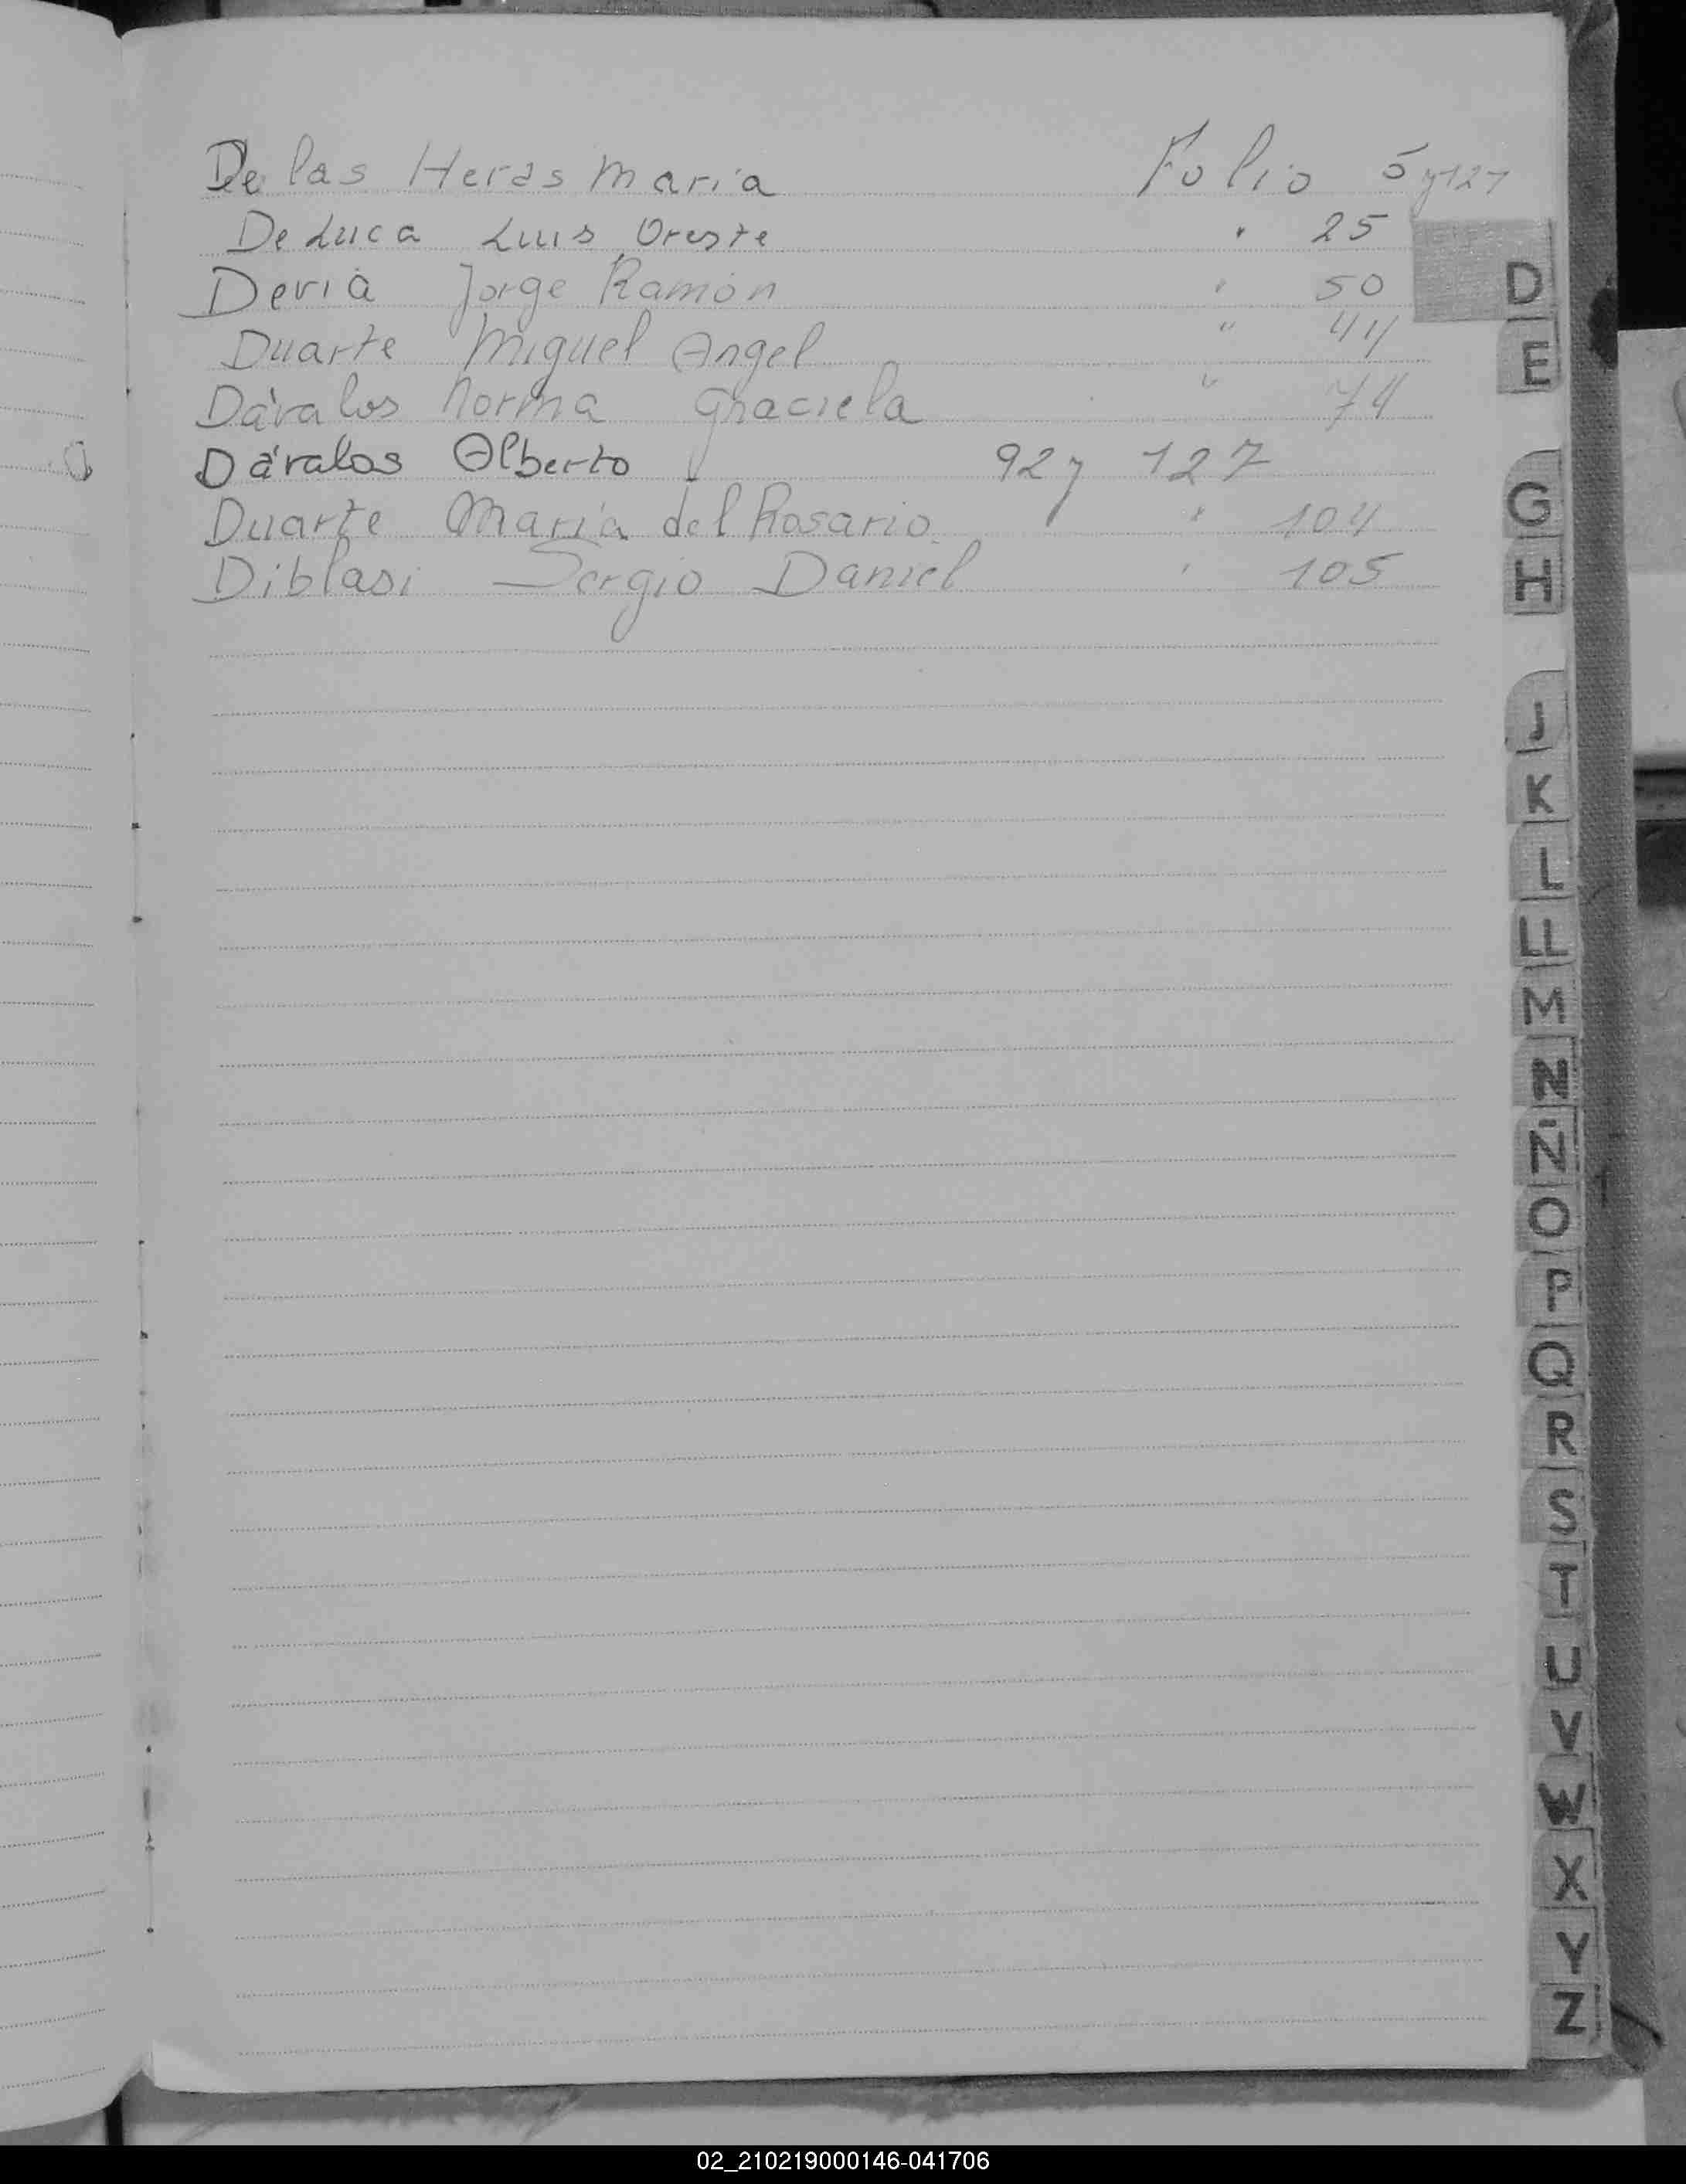 De las Heras Maria Folio 5 y 127
De Luca Luis Oreste " 25
Deviá Jorge Ramón " 50
Duarte Miguel Angel " 44
Dávalos Norma Graciela " 74
Dávalos Alberto 92 y 127
Duarte María del Rosario " 104
Diblasi Sergio Daniel " 105
D
E
G
H
J
K
L
LL
M
N
Ñ
O
P
Q
R
S
T
U
V
W
X
Y
Z
02_210219000146-041706